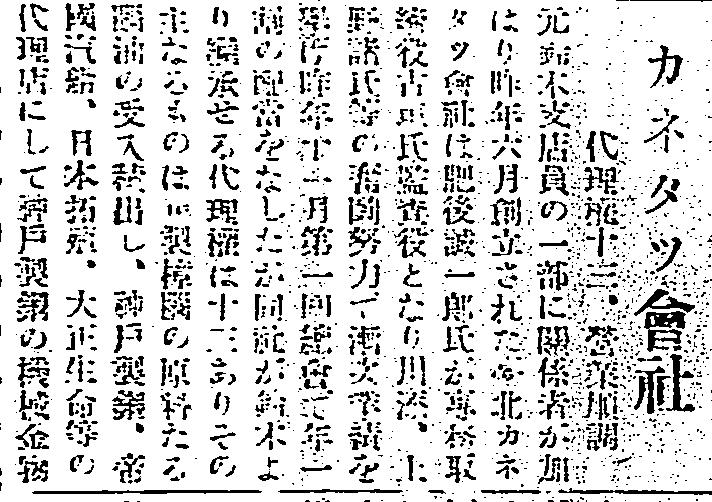 カネタツ會社
代理權十三、營業順調
元鈴木支店員の一部に關係者が加
はり昨年六月創立された台北カネ
タツ會社は肥後誠一郎氏が專務取
締役古 氏監査役となり川添、上
野諸氏等の奮鬪努力で漸次業績を
擧げ昨年十一月第一回總會で年一
割の配當をなしたが同社が鈴木よ
り繼承せる代理權は十三ありその
主なるものは 製樟腦の原料たる
腦油の受入積出し、神戸製鋼、帝
國汽船、日本拓殖、大正生命等の
代理店にして神戸製鋼の機械金物